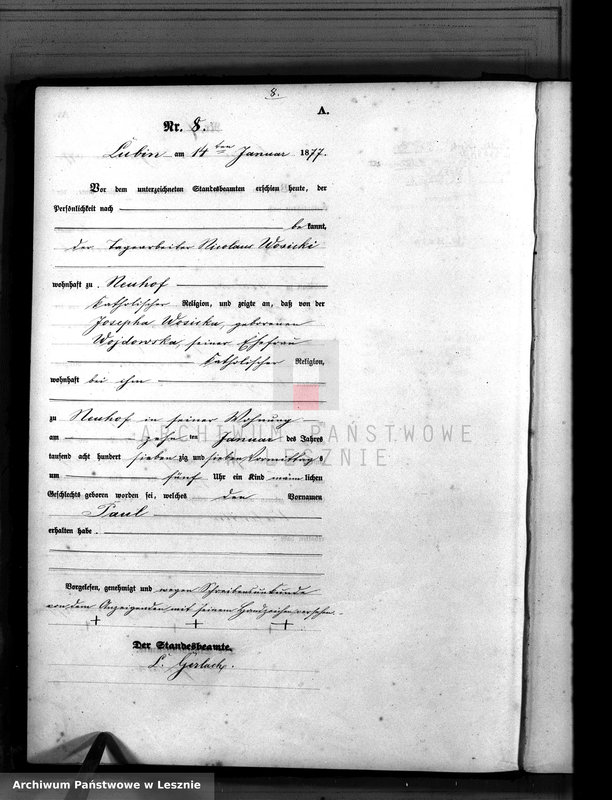 8.
A.
Nr. 8.
Lubin am 14ten Januar 1877.
Vor dem unterzeichneten Standesbeamten erschien heute, der
Persönlichkeit nach
bekannt,
der Tagearbeiter Nicolaus Wosicki
wohnhaft zu Neuhof
katholischer Religion, und zeigte an, daß von der
Josepha Wosicka, geborenen
Wojdowska, seiner Ehefrau
katholischer Religion,
wohnhaft bei ihm
zu Neuhof in seiner Wohnung
am zehn ten Januar des Jahres
tausend acht hundert siebenzig und sieben Vormittags
um fünf Uhr ein Kind männlichen
Geschlechts geboren worden sei, welches den Vornamen
Paul
erhalten habe.
Vorgelesen, genehmigt und wegen Schreibensunkunde
von dem Anzeigenden mit seinem Handzeichen versehen.
+ + +
Der Standesbeamte.
L. Gerlach.
ARCHIWUM PAŃSTWOWE
W LESZNIE
Archiwum Państwowe w Lesznie